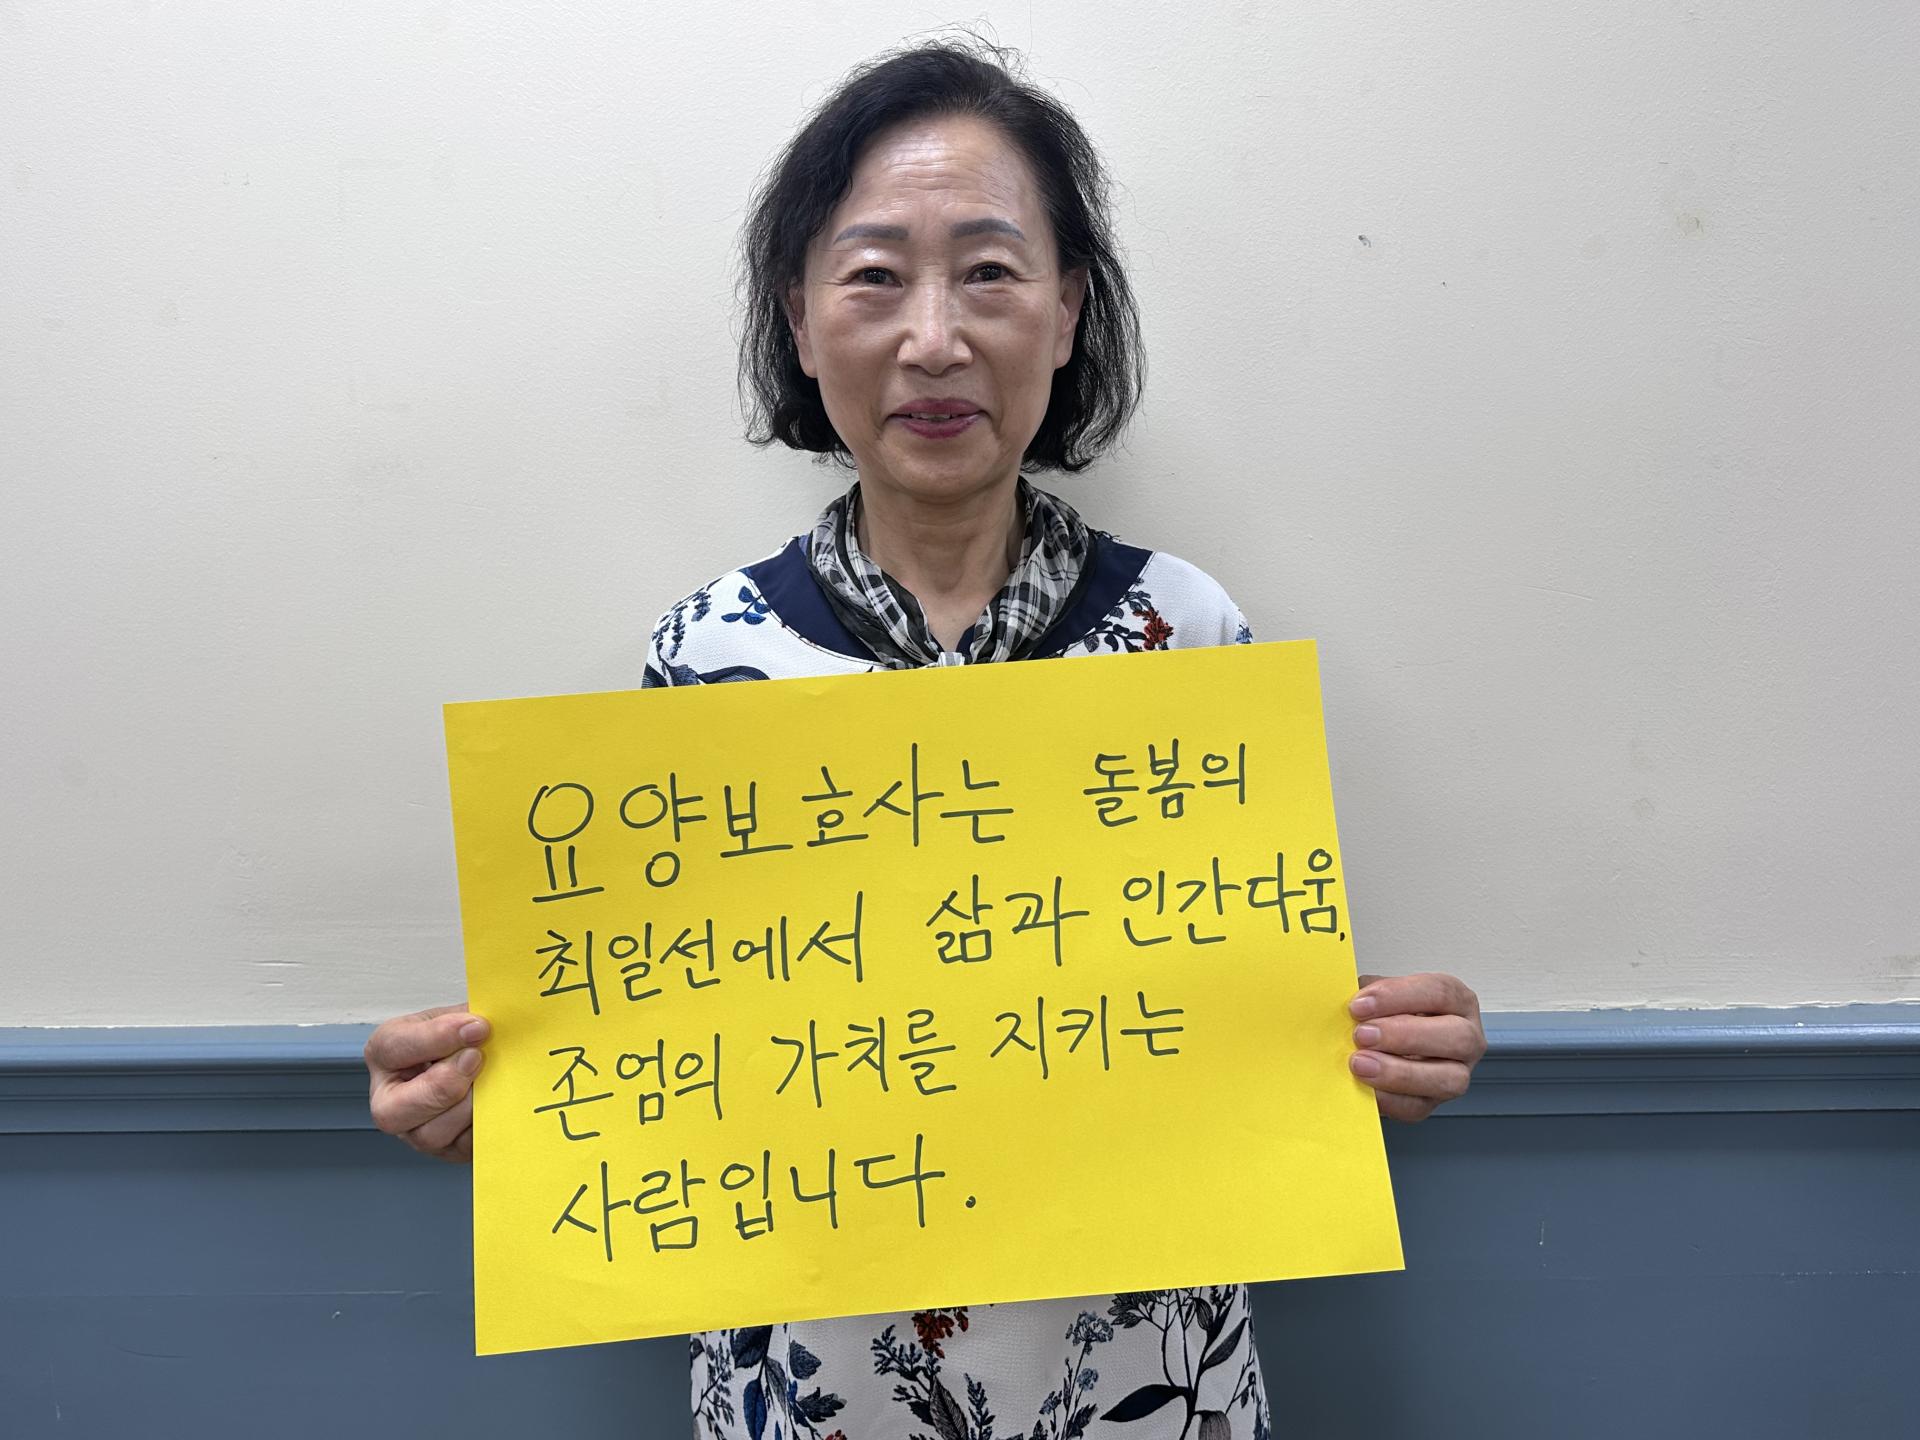 요양보호사는 돌봄의
최일선에서 삶과 인간다움,
존엄의 가치를 지키는
사람입니다.